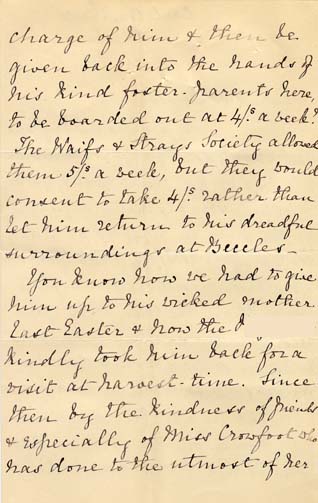 charge of him & then be
given back into the hands of
his kind foster-parents here,
to be boarded out at 4/s a week?
The Waifs & Strays Society allowed
them 5/s a week, but they would
consent to take 4/s rather than
let him return to his dreadful
surroundings at Beccles -
You know how we had to give
him up to his wicked mother
last Easter & how the
kindly took him back" for a
visit at harvest-time. Since
then by the kindness of friends
& especially of Miss Crowfoot who
has done to the utmost of her